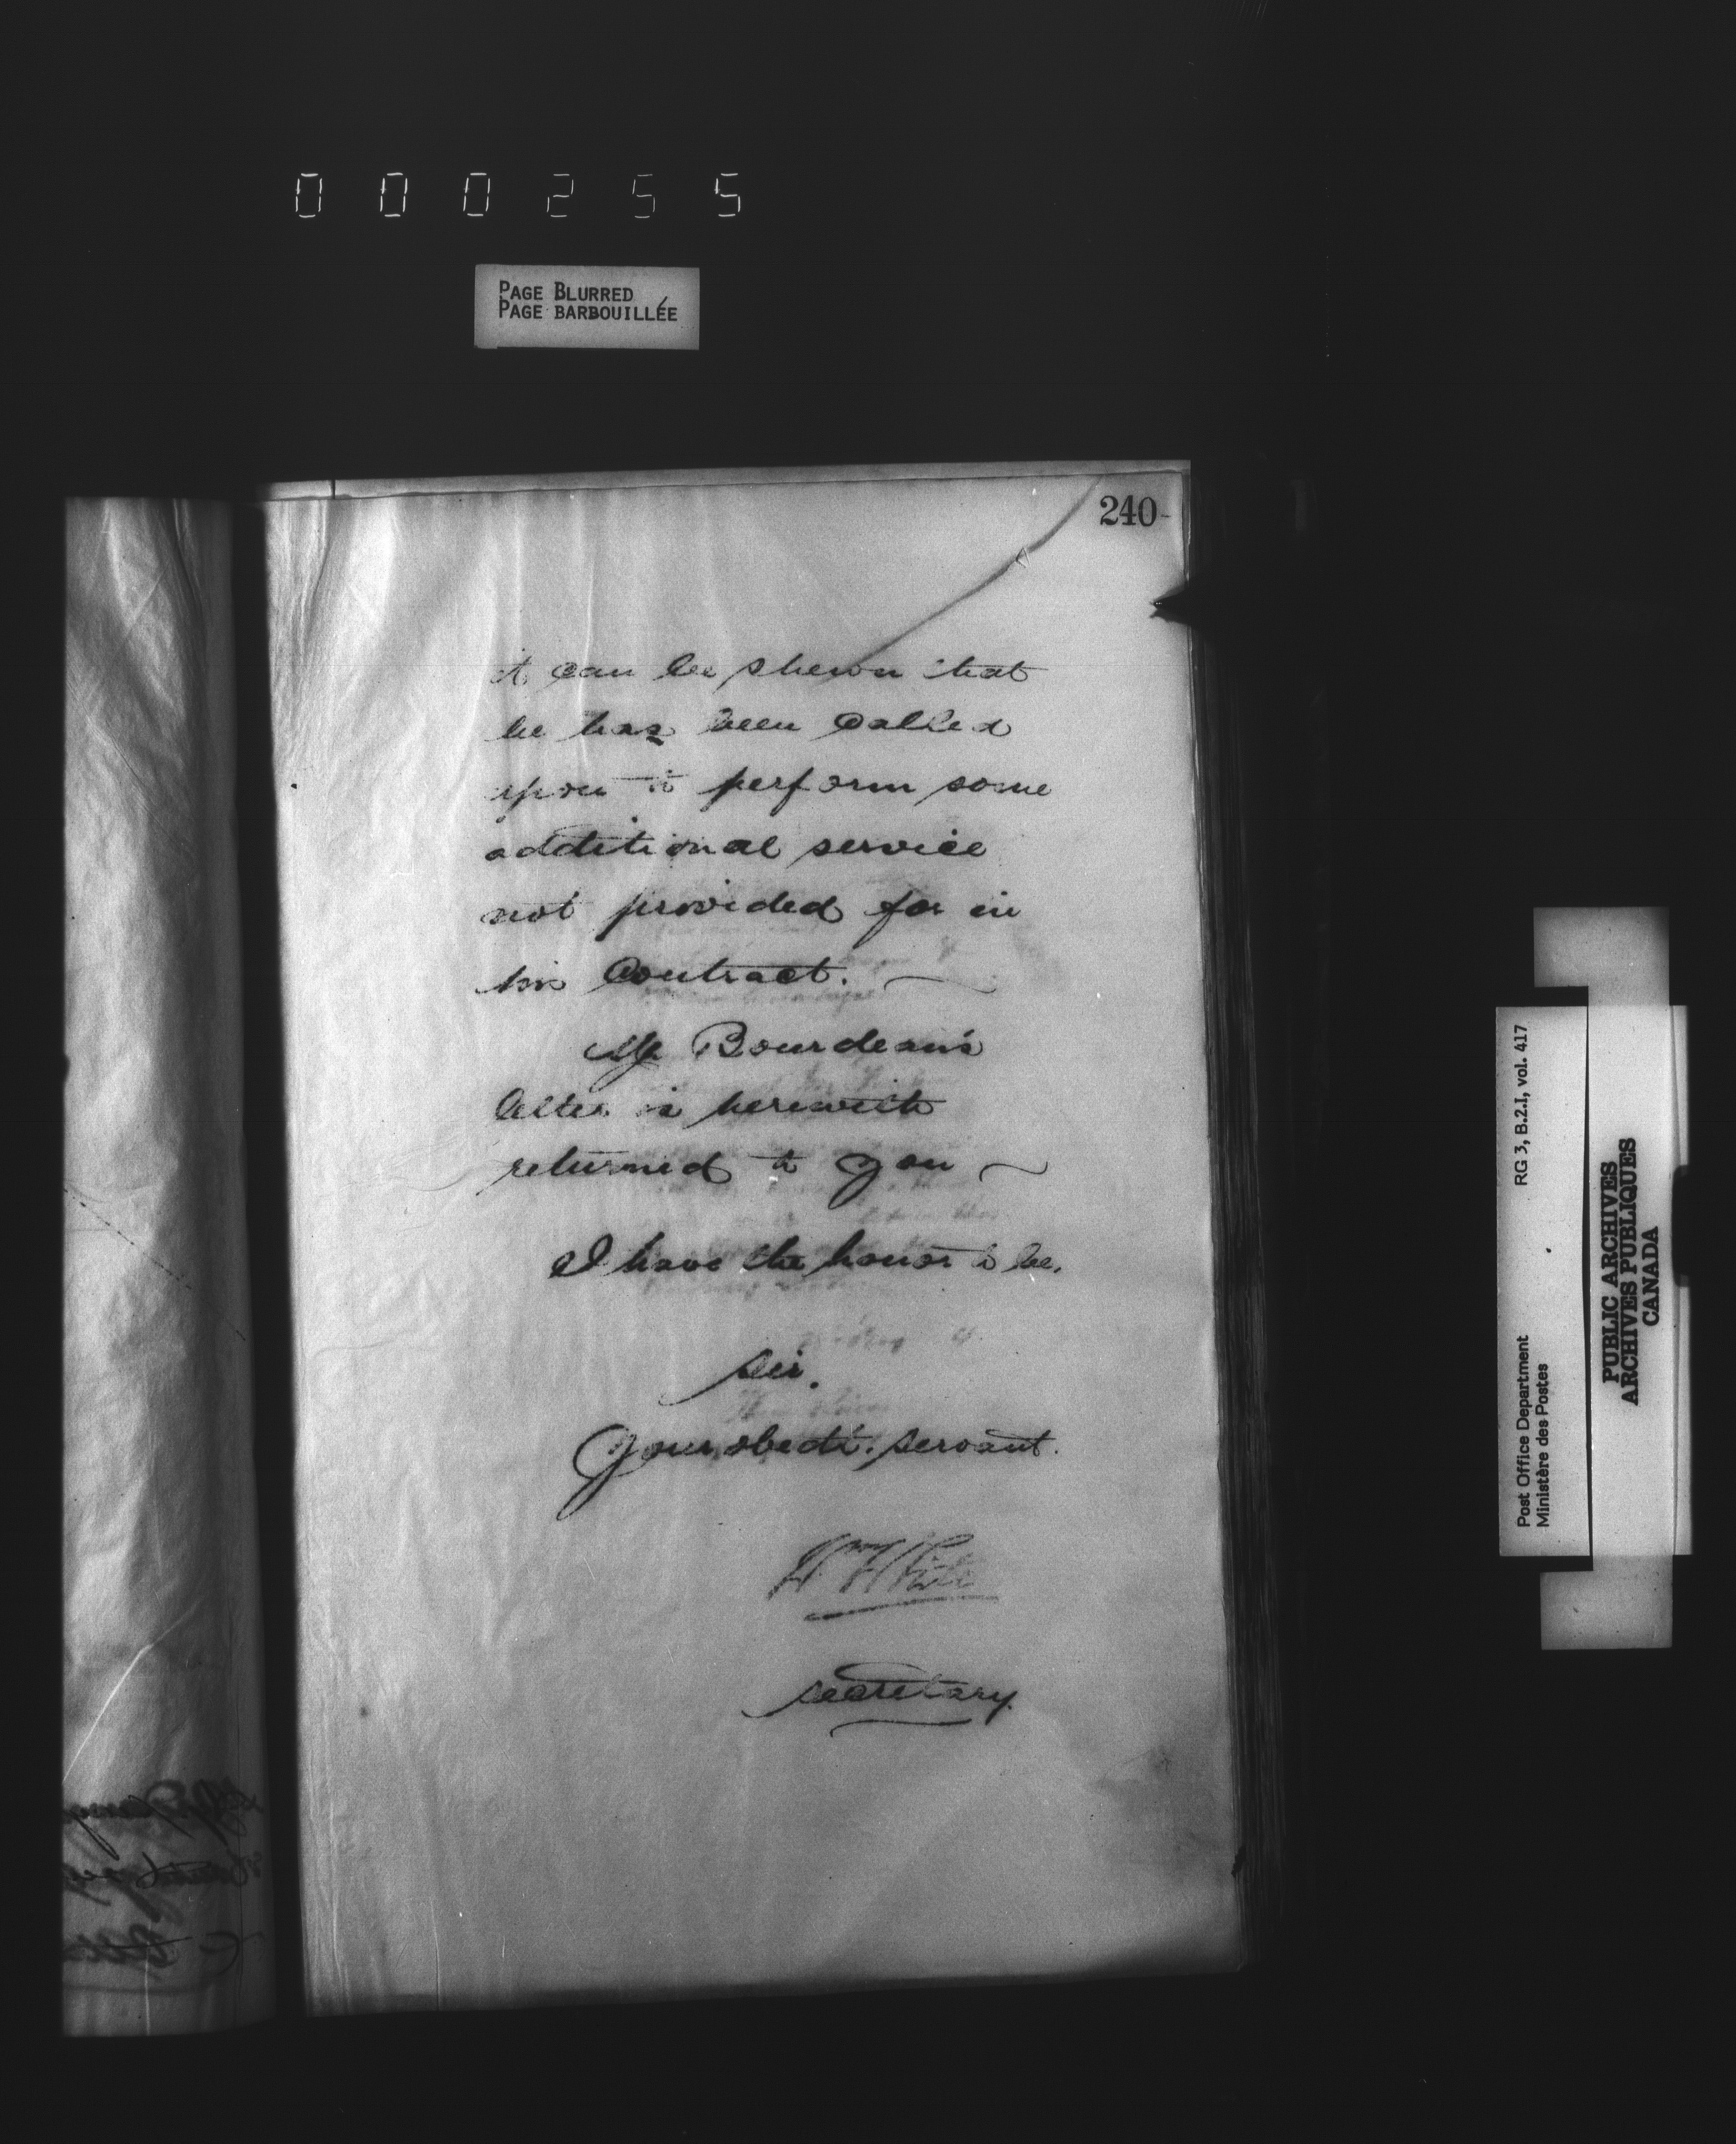 000255
PAGE BLURRED
PAGE BARBOUILLÉE
240
it can be shewn that
he has been called
upon to perform some
additional service
not provided for in
his Contract.
Mr Bourdeau's
letter is herewith
returned to you
I have the honor to be,
Sir,
Your obedt. servant.
Wm White
Secretary.
Post Office Department RG 3, B.2.I, vol. 417
Ministère des Postes
PUBLIC ARCHIVES
ARCHIVES PUBLIQUES
CANADA